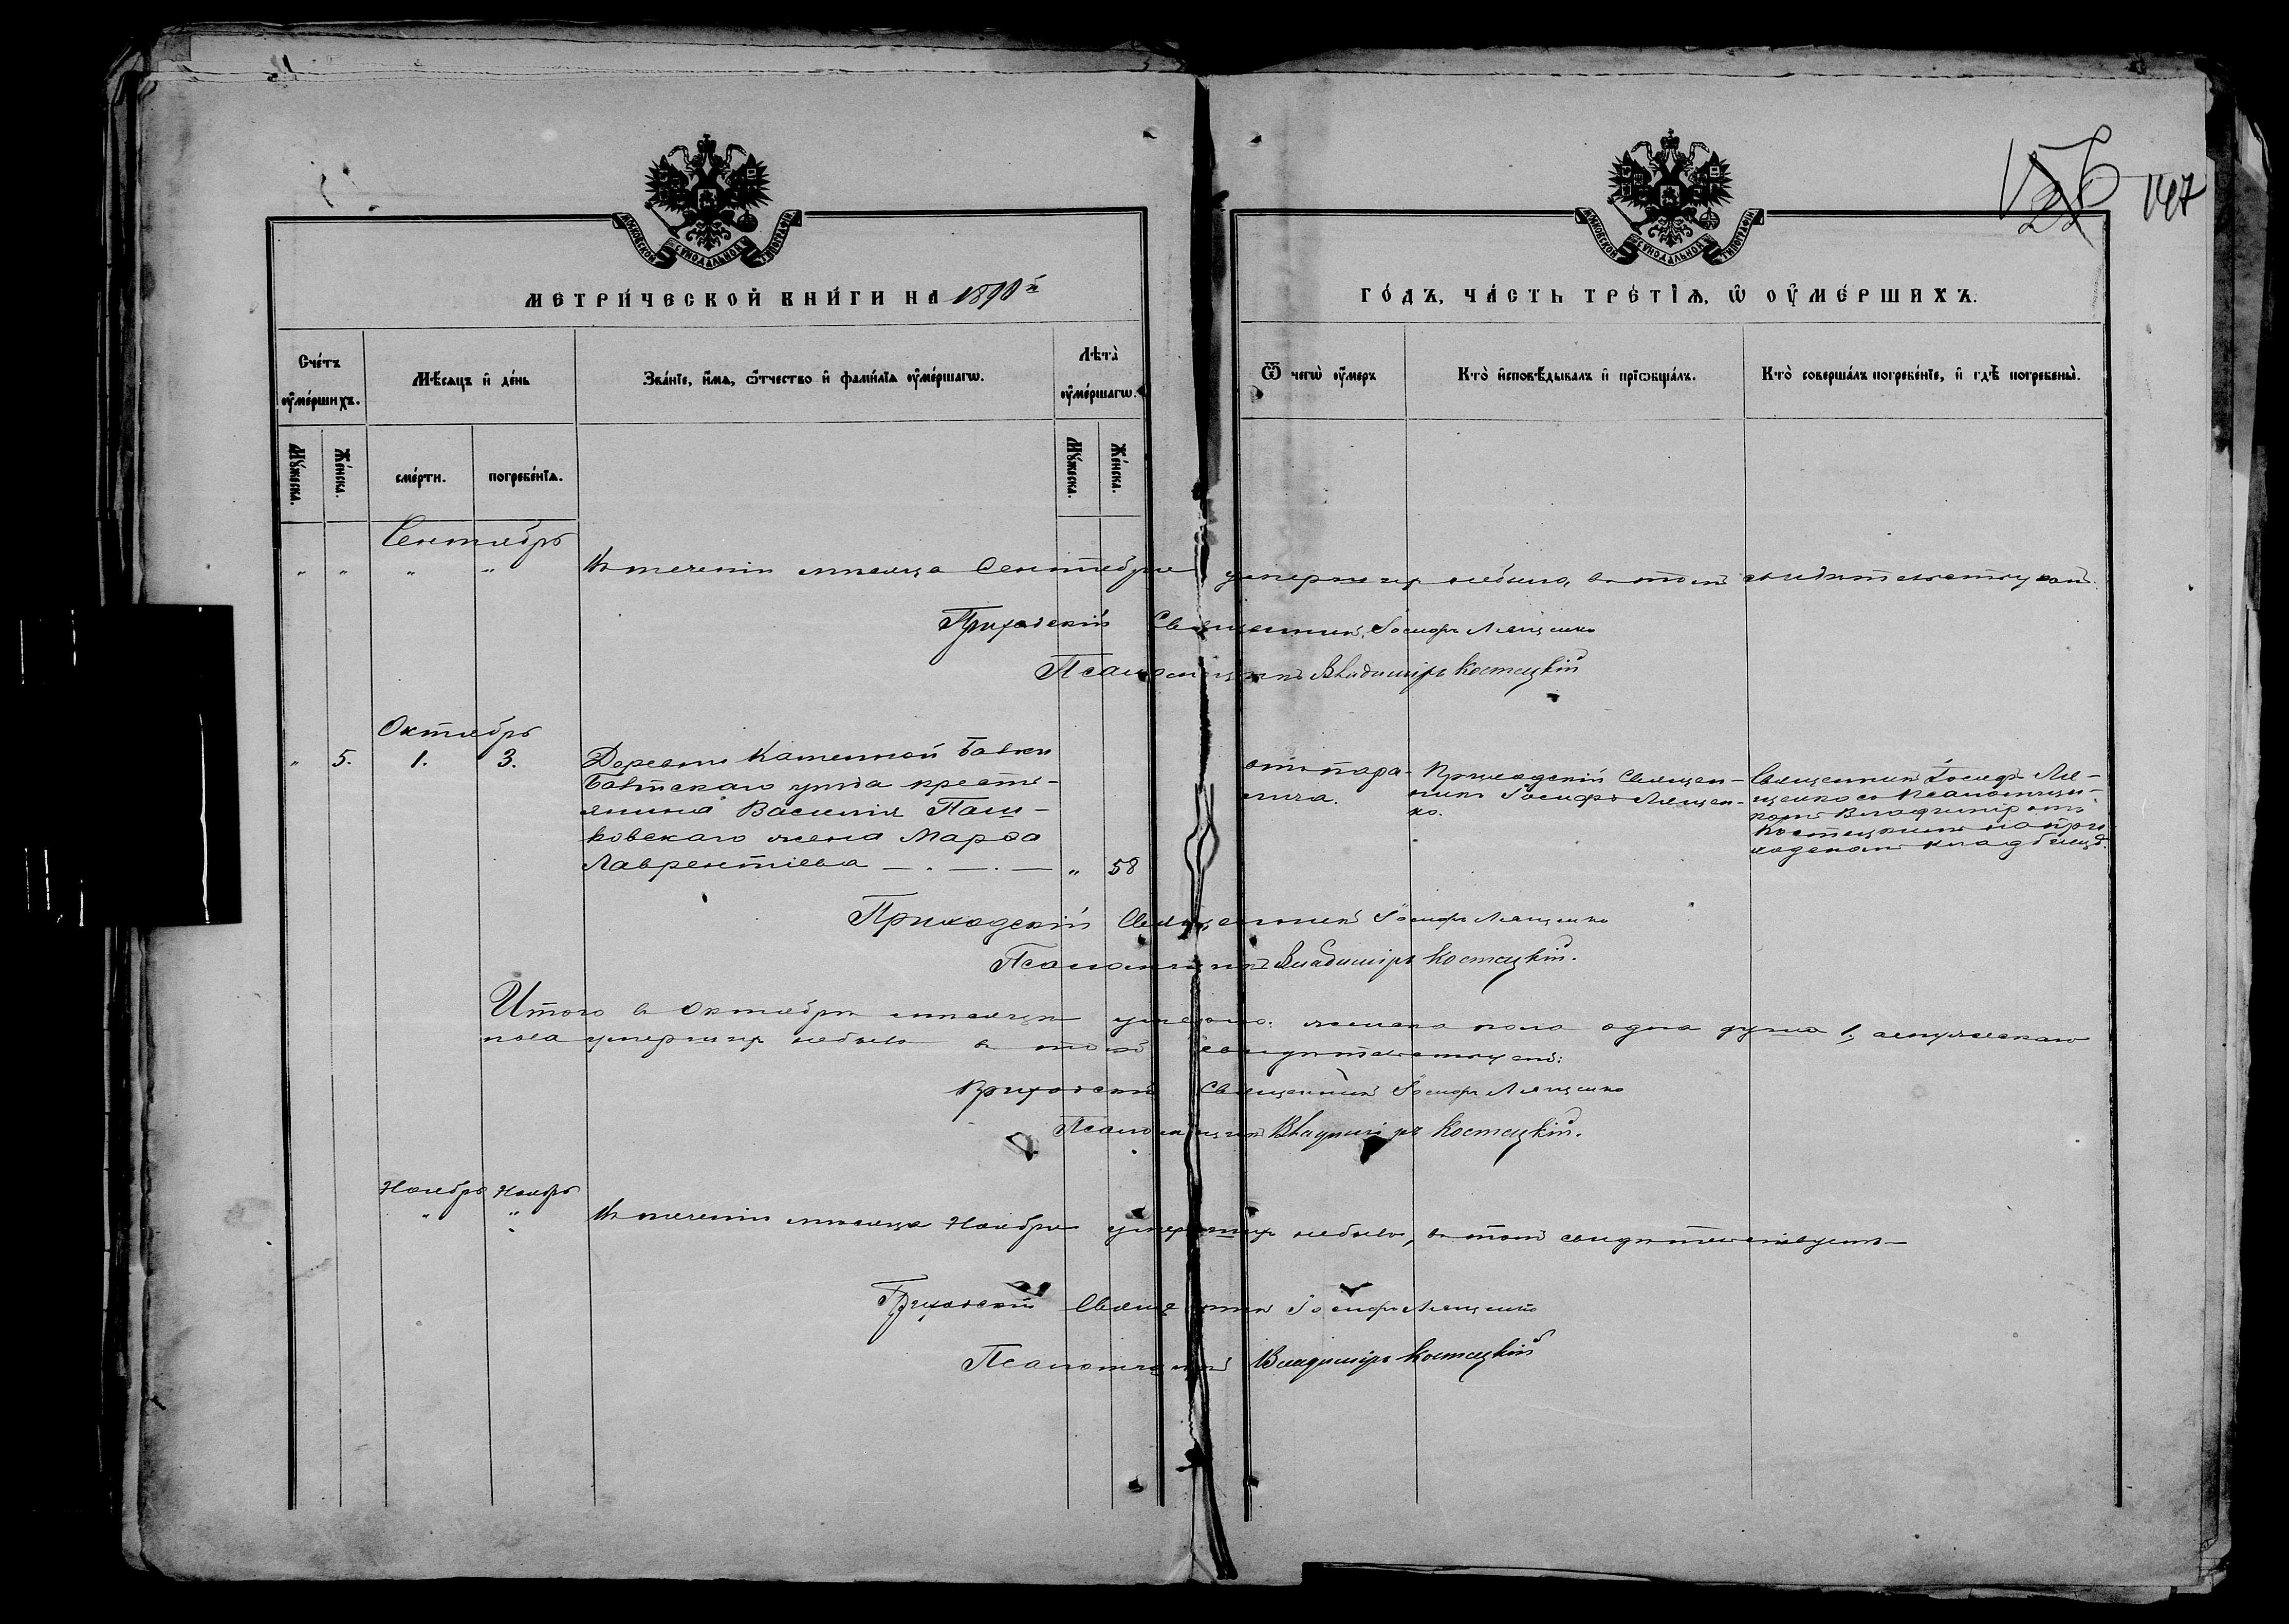 147
МОСКОВСКОЙ СѴНОДАЛЬНОЙ ТИПОГРАФІИ
МОСКОВСКОЙ СѴНОДАЛЬНОЙ ТИПОГРАФІИ
МЕТРИ́ЧЕСКОЙ КНИ́ГИ НА
ГО́ДЪ, ЧА́СТЬ ТРЕ́ТІѦ, Ѡ҆ ОУ҆МЕ́РШИХЪ.
Сче́тъ оу҆ме́ршихъ.
Мѣ́сяцъ и҆ де́нь
Зва́нїе, и҆́мѧ, ѻ҆́тчество и҆ фами́лїѧ оу҆ме́ршагѡ.
Лѣ́та оу҆ме́ршагѡ.
Ѿ чегѡ̀ оу҆́меръ
Кто̀ и҆сповѣ́дывалъ и҆ прїѡбща́лъ.
Кто̀ соверша́лъ погребе́нїе, и҆ гдѣ̀ погребены̀.
Му́жеска.
Же́нска.
сме́рти.
погребе́нїѧ.
Му́жеска.
Же́нска.
Сентябрь
" " " " Въ теченіи мѣсяца Сентября умершихъ небыло, въ томъ свидѣтельствуемъ.
Приходскій Священникъ Іосифъ Лященко
Псаломщикъ Владиміръ Костецкій
Октябрь
" 5. 1. 3.
Деревни Каменной Балки
Балтскаго уѣзда кресть-
янина Василія Паш-
ковскаго жена Марѳа
Лаврентіева — . — . — " 58
отъ пара-
лича.
Приходскій Священ-
никъ Іосифъ Лящен-
ко.
Священникъ Іосифъ Ля-
щенко съ Псаломщи-
комъ Владиміромъ
Костецкимъ на при-
ходскомъ кладбищѣ.
Приходскій Священникъ Іосифъ Лященко
Псаломщикъ Владиміръ Костецкій.
Итого въ Октябрѣ мѣсяцѣ умерло: женска пола одна душа 1, а мужескаго
пола умершихъ небыло въ томъ свидѣтельствуемъ:
Приходскій Священникъ Іосифъ Лященко
Псаломщикъ Владиміръ Костецкій.
Ноябрь Ноябрь
" " Въ теченіи мѣсяца Ноября умершихъ небыло, въ томъ свидѣтельствуемъ —
Приходскій Священникъ Іосифъ Лященко
Псаломщикъ Владиміръ Костецкій